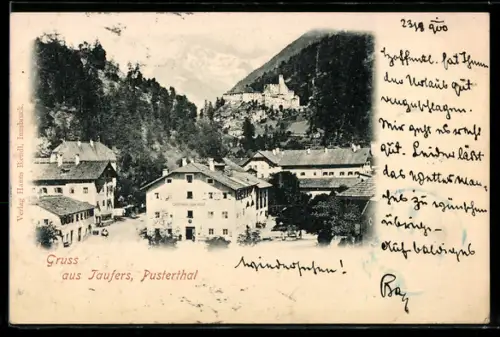 Verlag Hanns Reindl, Innsbruck.
23/8 900
Hoffentl. hat Ihnen
der Urlaub gut
angeschlagen.
Mir geht es recht
gut. Leider läßt
das Wetter Man-
ches zu wünschen
übrig.
Auf baldiges
Wiedersehen!
Gruss
aus Taufers, Pusterthal